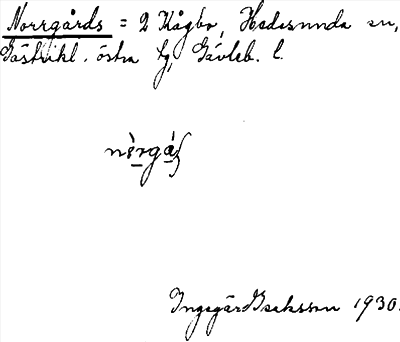 Norrgårds = 2 Kågbo, Hedesunda sn,
Gästrikl. östra tg, Gävleb. l.
Ingegär Isaksson 1930.